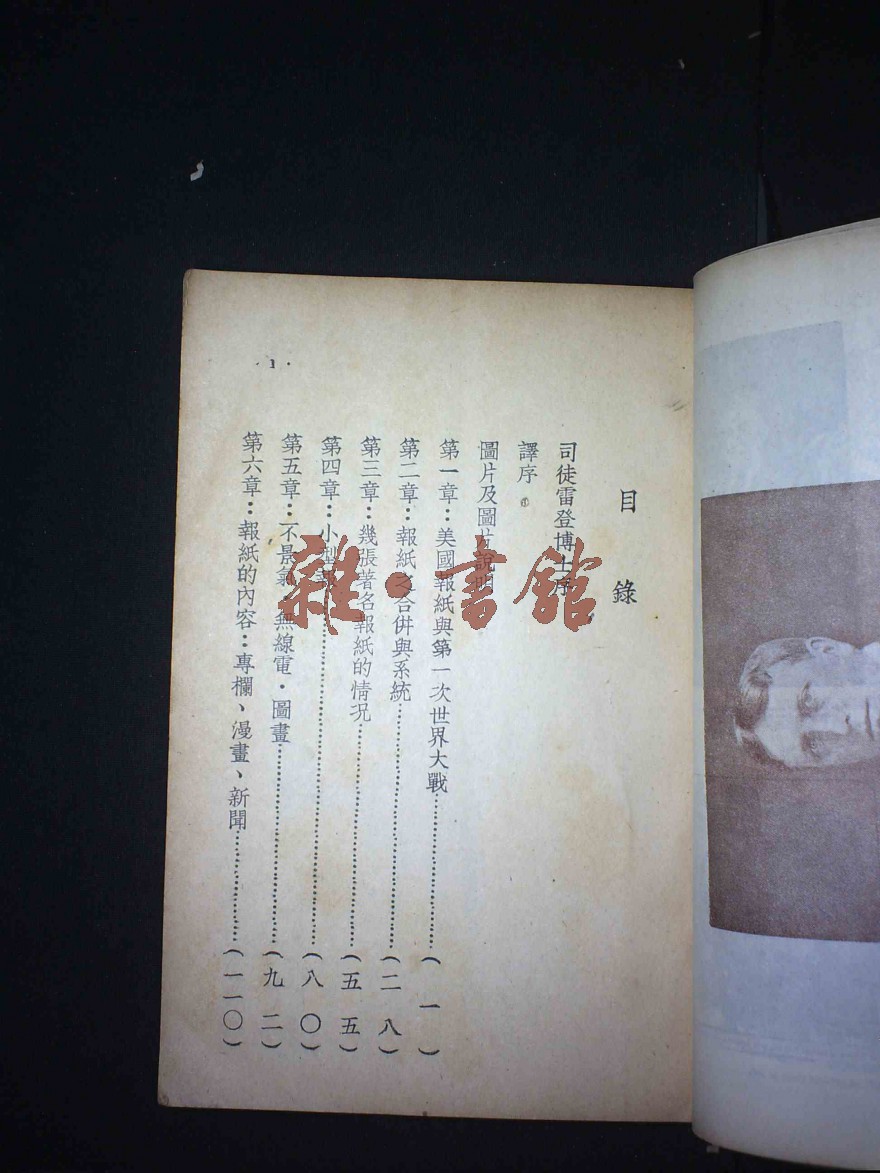 目錄
司徒雷登博士序
譯序
圖片及圖片說明
第一章：美國報紙與第一次世界大戰……(一)
第二章：報紙之合併與系統……(二八)
第三章：幾張著名報紙的情況……(五五)
第四章：小型報……(八〇)
第五章：不景氣・無線電・圖畫……(九二)
第六章：報紙的內容：專欄、漫畫、新聞……(一一〇)
·1·
雜·書館